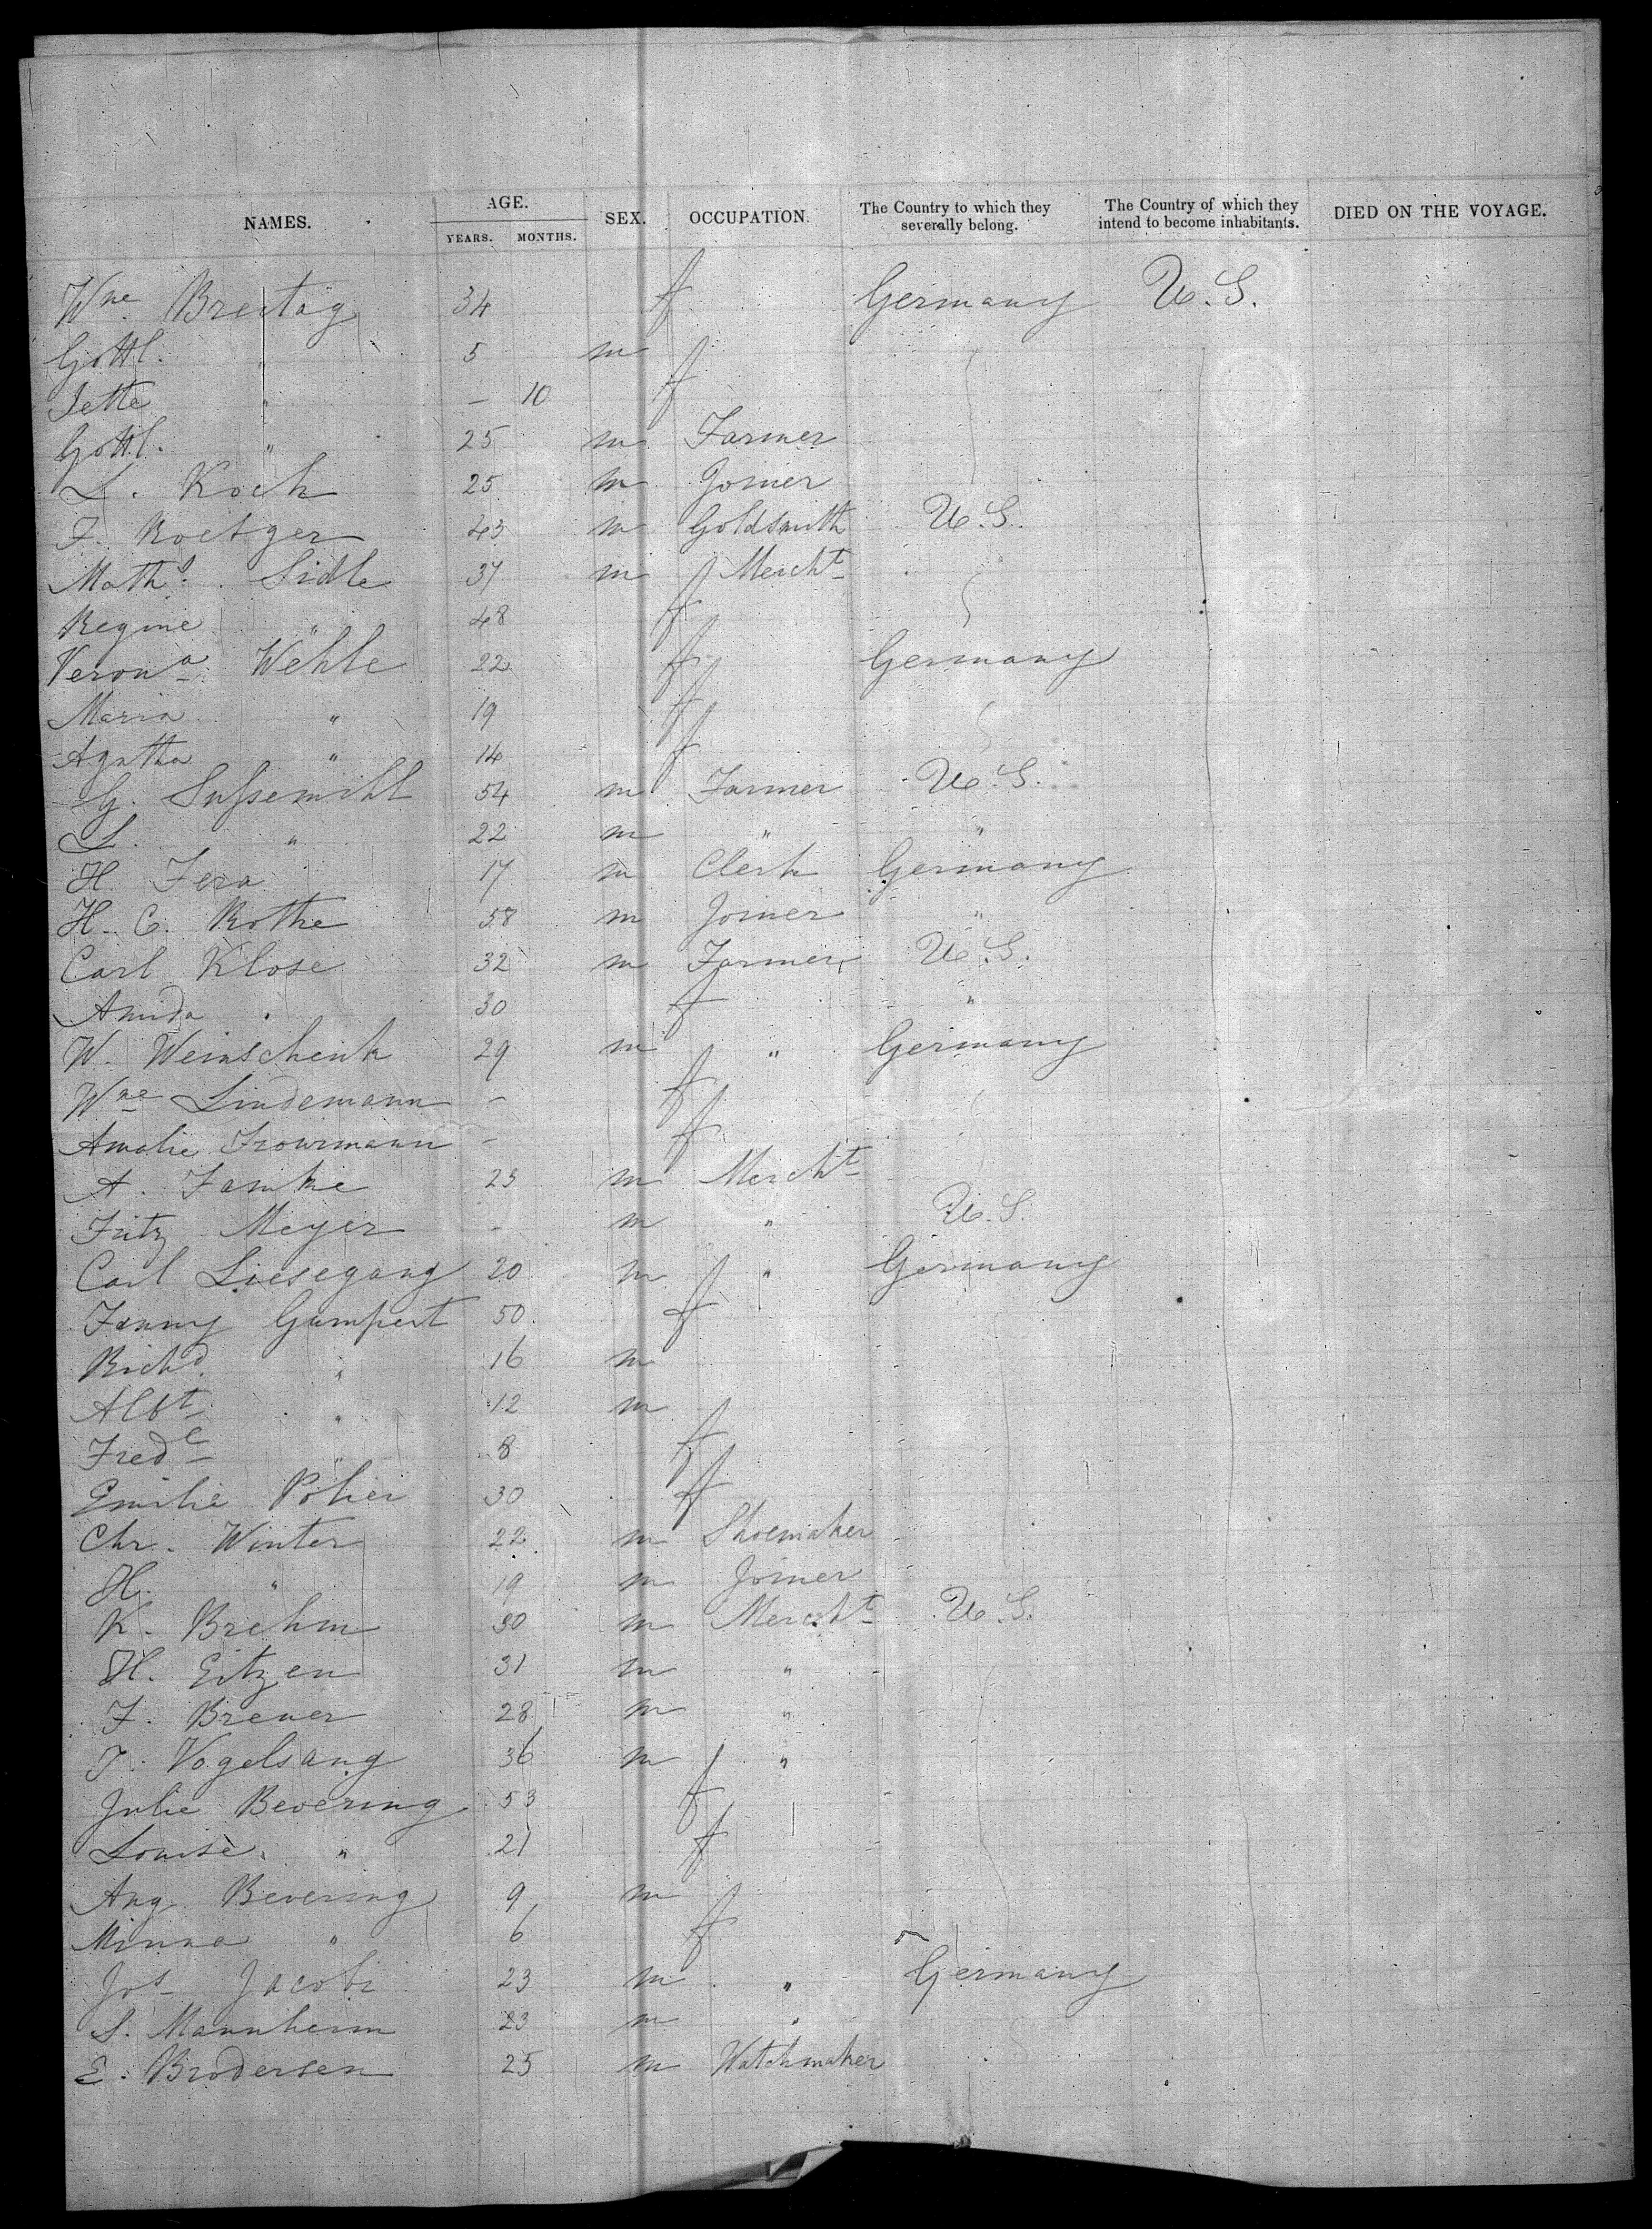 NAMES. AGE. YEARS. MONTHS. SEX. OCCUPATION. The Country to which they severally belong. The Country of which they intend to become inhabitants. DIED ON THE VOYAGE.
Wne Breitag 34 f Germany U.S.
Gottl. " 5 m
Jette " — 10 f
Gottl. " 25 m Farmer
L. Koch 25 m Joiner
F. Roetger 43 m Goldsmith U.S.
Maths. Sidle 37 m Mercht
Regine " 48 f
Verona Wehle 22 f Germany
Maria " 19 f
Agatha " 14 f
G. Sussemihl 54 m Farmer U.S.
L. " 22 m " "
H. Fera 17 m Clerk Germany
H. C. Rothe 58 m Joiner "
Carl Klose 32 m Farmer U.S.
Amida " 30 f "
W. Weinschenk 29 m " Germany
Wne Lindemann - f
Amalie - f
A. Famke 23 m Mercht
Fritz Meyer - m " U.S.
Carl Liesegang 20 m " Germany
Fanny Gumpert 50 f
Richd. " 16 m
Albt " 12 m
Frede " 8 f
Emilie 30 f
Chr. Winter 22 m Shoemaker
H. " 19 m Joiner
K. Brehm 30 m Mercht U.S.
H. Eitzen 31 m "
F. Brener 28 m "
F. Vogelsang 36 m "
Julie Bevering 53 f
Louise " 21 f
Aug. Bevering 9 m
Minna " 6 f
Jos Jacobi 23 m " Germany
S. Mannheim 23 m "
E. Brodersen 25 m Watchmaker